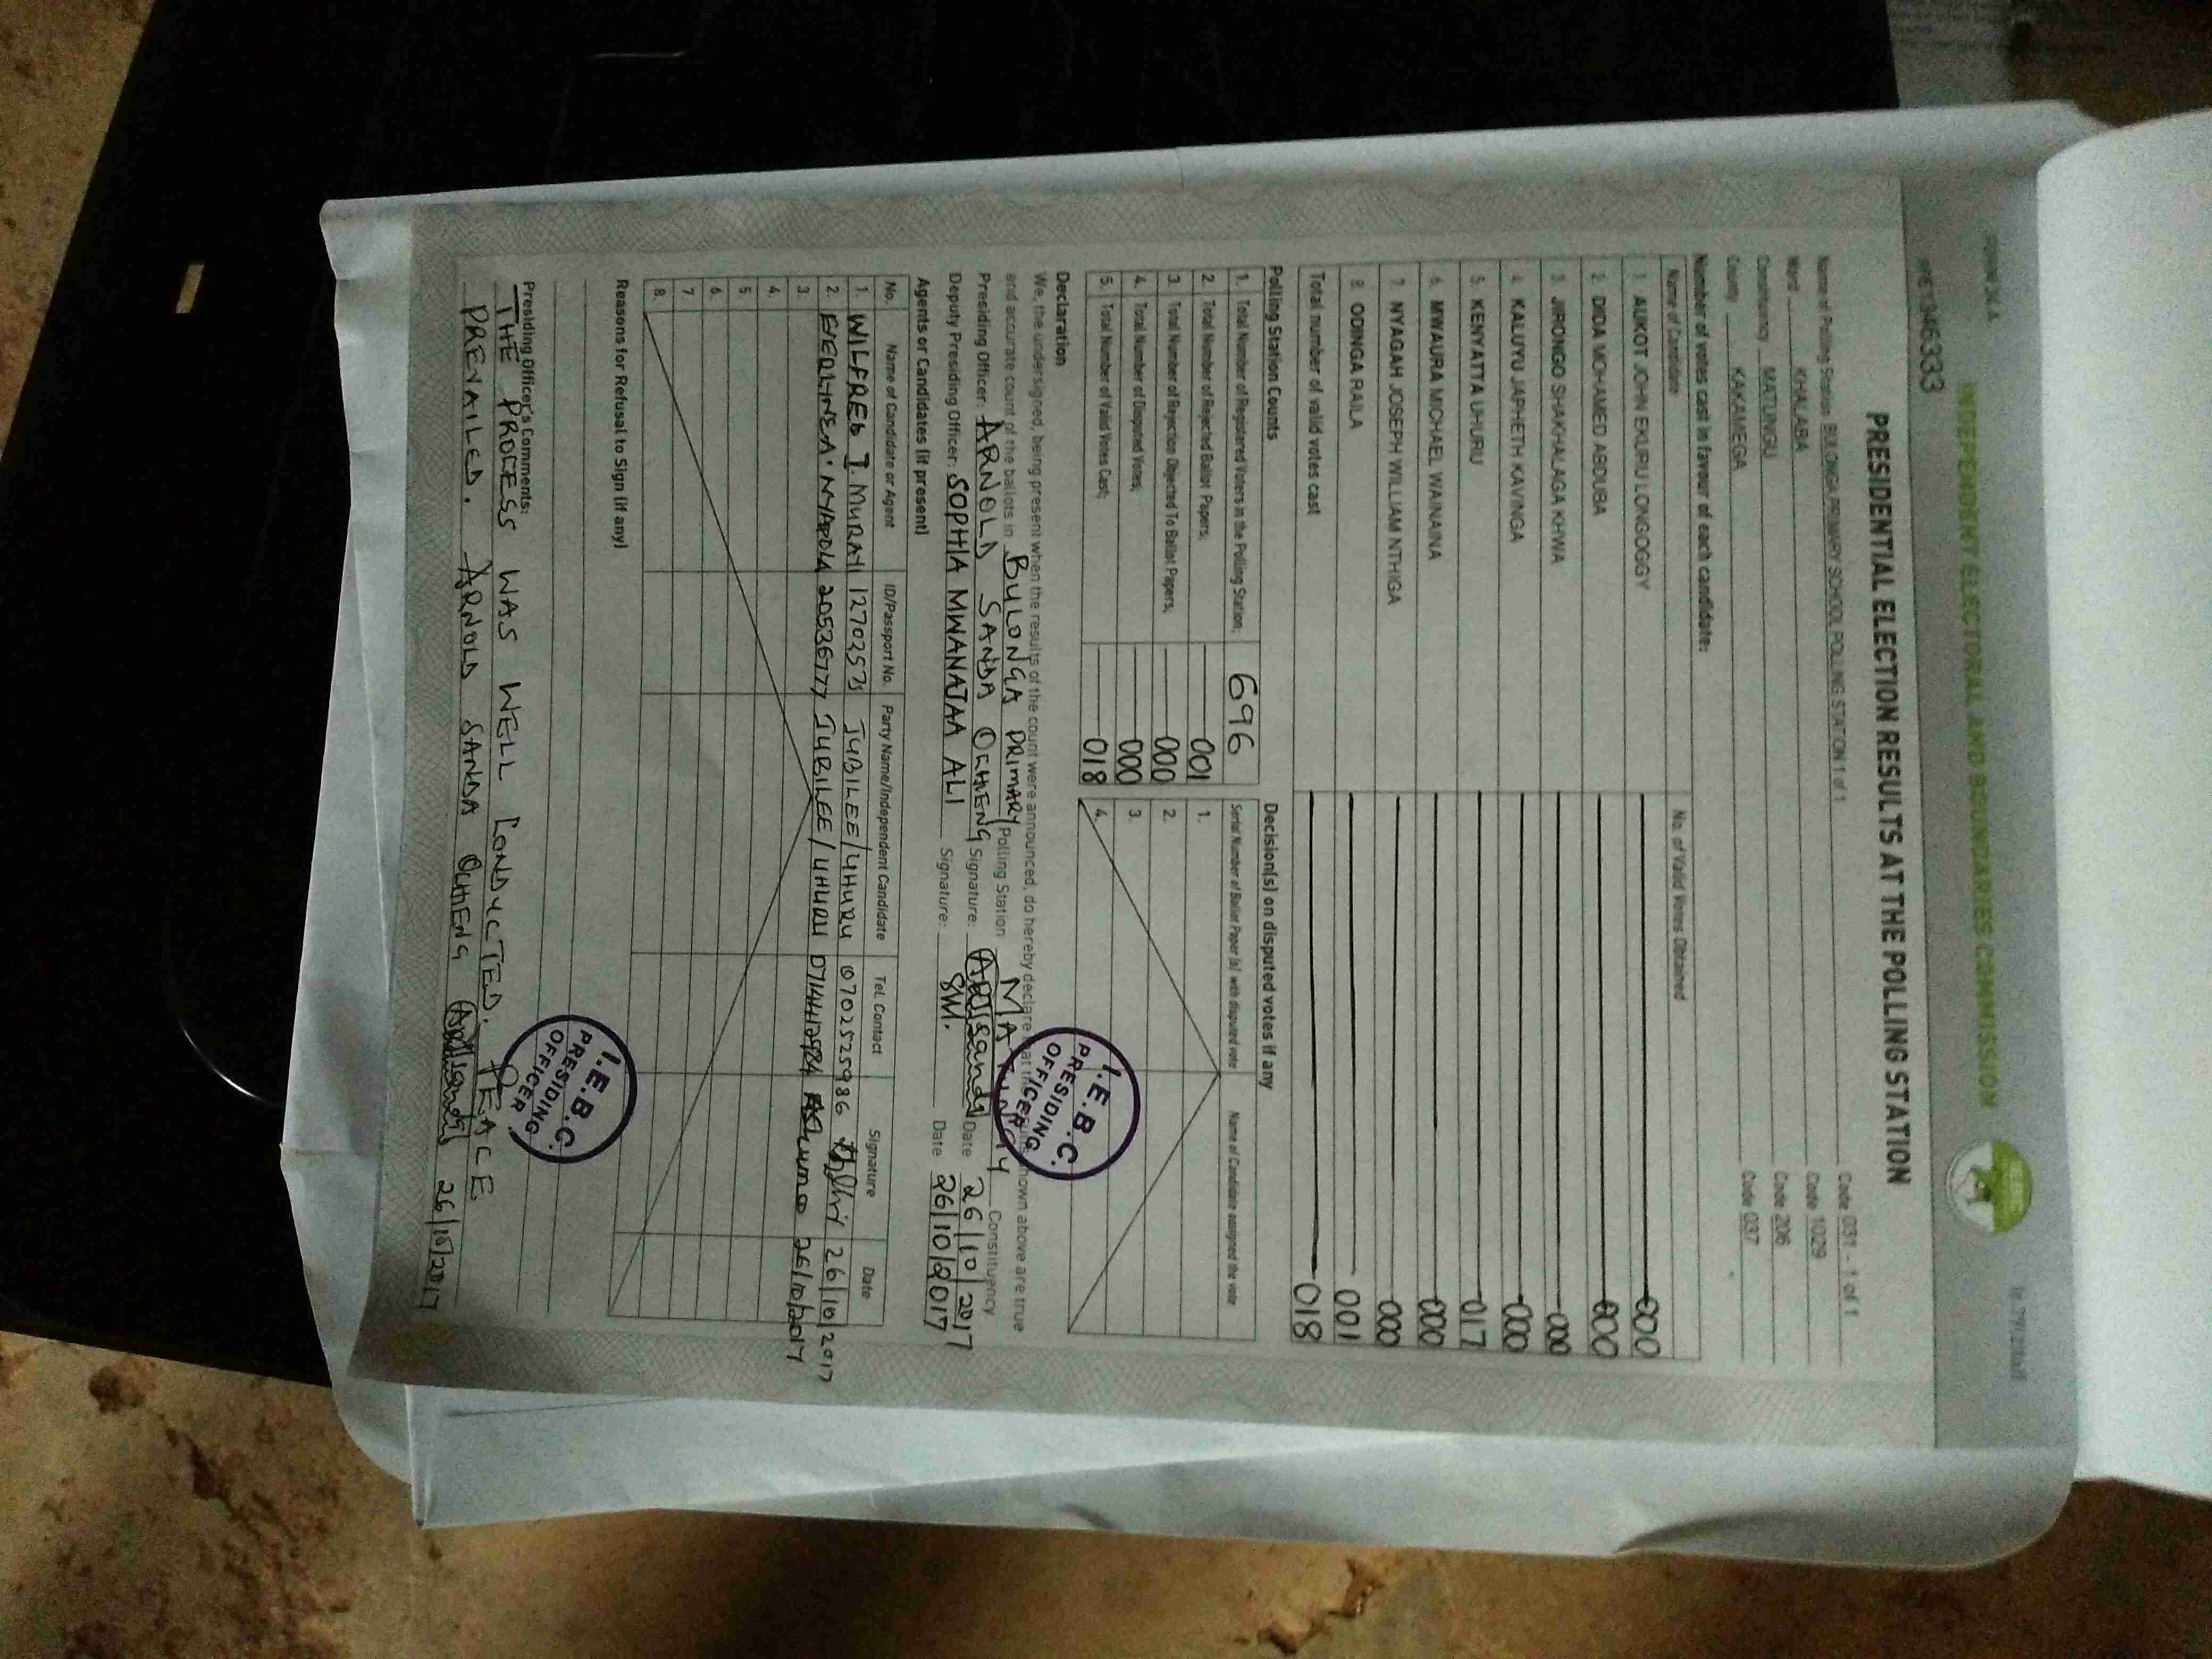 FORM 34 A
INDEPENDENT ELECTORAL AND BOUNDARIES COMMISSION
PRESIDENTIAL ELECTION RESULTS AT THE POLLING STATION
Name of Polling Station BULONGA PRIMARY SCHOOL POLLING STATION 1 of 1 Code 031 - 1 of 1
Ward KHALABA Code 1029
Constituency MATUNGU Code 206
County KAKAMEGA Code 037
Number of votes cast in favour of each candidate:
Name of Candidate No. of Valid Votes Obtained
1 AUKOT JOHN EKURU LONGOGGY 000
2 DIDA MOHAMED ABDUBA 000
3 JIRONGO SHAKHALAGA KHWA 000
4 KALUYU JAPHETH KAVINGA 000
5 KENYATTA UHURU 017
6 MWAURA MICHAEL WAINAINA 000
7 NYAGAH JOSEPH WILLIAM NTHIGA 000
8 ODINGA RAILA 001
Total number of valid votes cast 018
Polling Station Counts
1. Total Number of Registered Voters in the Polling Station; 696
2. Total Number of Rejected Ballot Papers; 001
3. Total Number of Rejection Objected To Ballot Papers; 000
4. Total Number of Disputed Votes; 000
5. Total Number of Valid Votes Cast; 018
Decision(s) on disputed votes if any
Serial Number of Ballot Paper (s) with disputed vote Name of Candidate assigned the vote
1.
2.
3.
4.
Declaration
We, the undersigned, being present when the results of the count were announced, do hereby declare that the shown above are true
and accurate count of the ballots in BULONGA PRIMARY Polling Station Constituency
Presiding Officer: ARNOLD SANDA OCHIENG Signature: Date 26/10/2017
Deputy Presiding Officer: SOPHIA MWANAJAA ALI Signature: SM. Date 26/10/2017
I.E.B.C.
PRESIDING
OFFICER
Agents or Candidates (if present)
No. Name of Candidate or Agent ID/Passport No. Party Name/Independent Candidate Tel. Contact Signature Date
1. WILFRED JUBILEE/UHURU 0702525986 26/10/2017
2. 20536777 JUBILEE/UHURU 26/10/2017
3.
4.
5.
6.
7.
8.
Reasons for Refusal to Sign (if any)
Presiding Officer's Comments:
THE PROCESS WAS WELL CONDUCTED. PEACE
PREVAILED. ARNOLD SANDA OCHIENG 26/10/2017
I.E.B.C.
PRESIDING
OFFICER